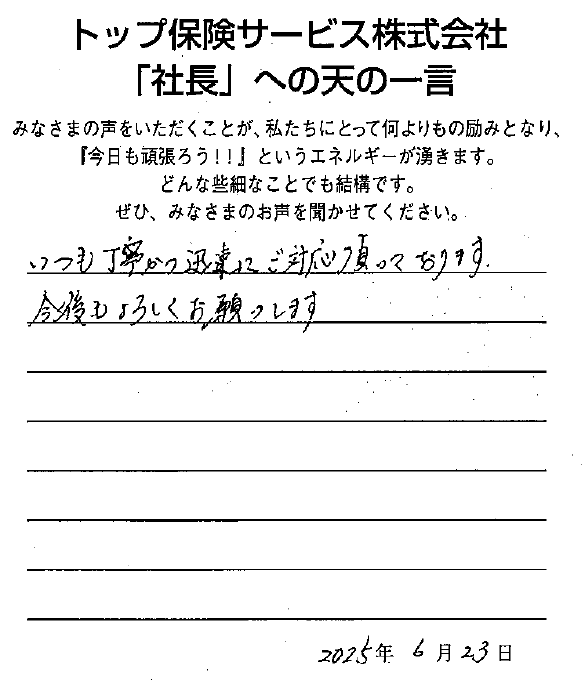 トップ保険サービス株式会社
「社長」への天の一言
みなさまの声をいただくことが、私たちにとって何よりもの励みとなり、
『今日も頑張ろう!!』というエネルギーが湧きます。
どんな些細なことでも結構です。
ぜひ、みなさまのお声を聞かせてください。
いつも丁寧かつ迅速にご対応頂いております.
今後もよろしくお願いします
2025年 6月23日